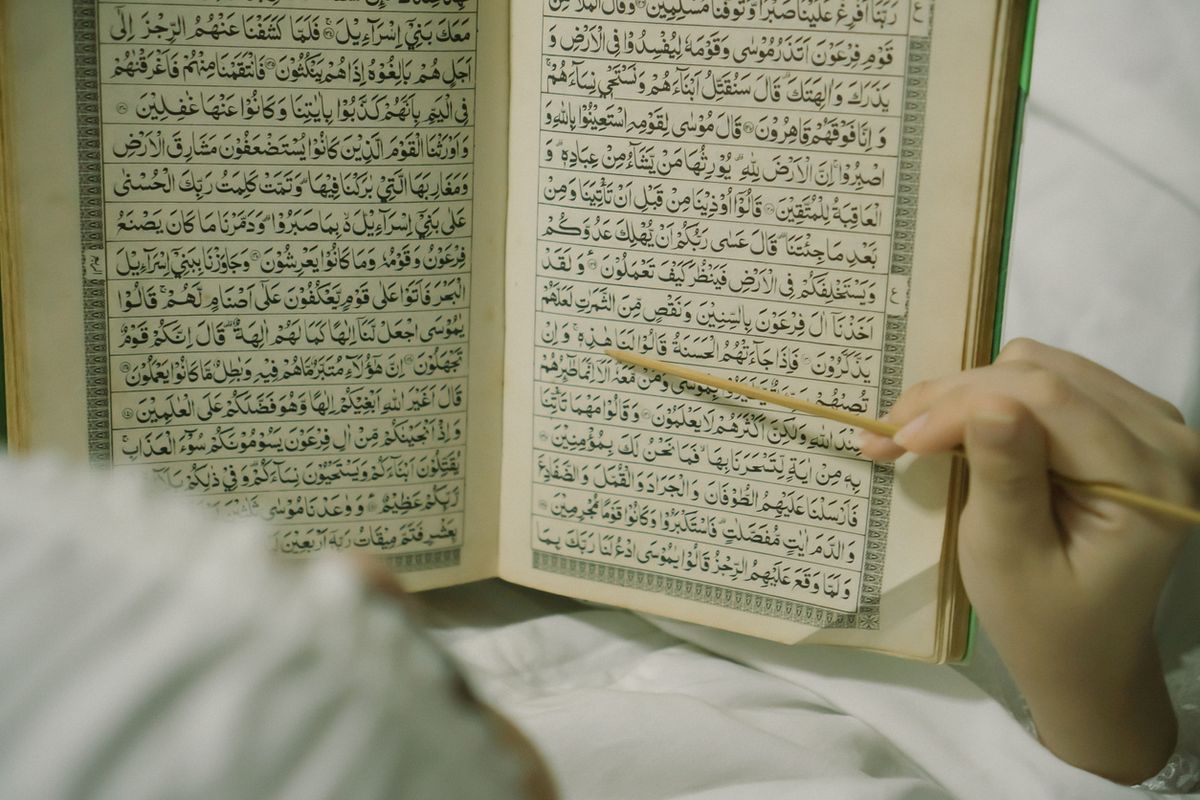 رَبَّنَا اَفْرِغْ عَلَيْنَا صَبْرًا وَّتَوَفَّنَا مُسْلِمِيْنَ وَقَالَ الْمَلَاُ مِنْ
قَوْمِ فِرْعَوْنَ اَتَذَرُ مُوْسٰى وَقَوْمَهٗ لِيُفْسِدُوْا فِى الْاَرْضِ وَ
يَذَرَكَ وَاٰلِهَتَكَ ؕ قَالَ سَنُقَتِّلُ اَبْنَآءَهُمْ وَنَسْتَحْيٖ نِسَآءَهُمْ ۚ
وَ اِنَّا فَوْقَهُمْ قٰهِرُوْنَ قَالَ مُوْسٰى لِقَوْمِهِ اسْتَعِيْنُوْا بِاللّٰهِ وَ
اصْبِرُوْا ۚ اِنَّ الْاَرْضَ لِلّٰهِ ۙ يُوْرِثُهَا مَنْ يَّشَآءُ مِنْ عِبَادِهٖ ؕ وَ
الْعَاقِبَةُ لِلْمُتَّقِيْنَ قَالُوْٓا اُوْذِيْنَا مِنْ قَبْلِ اَنْ تَاْتِيَنَا وَمِنْ
بَعْدِ مَا جِئْتَنَا ؕ قَالَ عَسٰى رَبُّكُمْ اَنْ يُّهْلِكَ عَدُوَّكُمْ
وَيَسْتَخْلِفَكُمْ فِى الْاَرْضِ فَيَنْظُرَ كَيْفَ تَعْمَلُوْنَ وَلَقَدْ
اَخَذْنَآ اٰلَ فِرْعَوْنَ بِالسِّنِيْنَ وَنَقْصٍ مِّنَ الثَّمَرٰتِ لَعَلَّهُمْ
يَذَّكَّرُوْنَ فَاِذَا جَآءَتْهُمُ الْحَسَنَةُ قَالُوْا لَنَا هٰذِهٖ ۚ وَاِنْ
تُصِبْهُمْ سَيِّئَةٌ يَّطَّيَّرُوْا بِمُوْسٰى وَمَنْ مَّعَهٗ ؕ اَلَآ اِنَّمَا طٰٓئِرُهُمْ
عِنْدَ اللّٰهِ وَلٰكِنَّ اَكْثَرَهُمْ لَا يَعْلَمُوْنَ وَقَالُوْا مَهْمَا تَاْتِنَا
بِهٖ مِنْ اٰيَةٍ لِّتَسْحَرَنَا بِهَا ۙ فَمَا نَحْنُ لَكَ بِمُؤْمِنِيْنَ
فَاَرْسَلْنَا عَلَيْهِمُ الطُّوْفَانَ وَ الْجَرَادَ وَ الْقُمَّلَ وَ الضَّفَادِعَ
وَ الدَّمَ اٰيٰتٍ مُّفَصَّلٰتٍ فَاسْتَكْبَرُوْا وَ كَانُوْا قَوْمًا مُّجْرِمِيْنَ
وَ لَمَّا وَقَعَ عَلَيْهِمُ الرِّجْزُ قَالُوْا يٰمُوْسَى ادْعُ لَنَا رَبَّكَ بِمَا
مَعَكَ بَنِيْٓ اِسْرَآءِيْلَ فَلَمَّا كَشَفْنَا عَنْهُمُ الرِّجْزَ اِلٰٓى
اَجَلٍ هُمْ بٰلِغُوْهُ اِذَا هُمْ يَنْكُثُوْنَ فَانْتَقَمْنَا مِنْهُمْ فَاَغْرَقْنٰهُمْ
فِى الْيَمِّ بِاَنَّهُمْ كَذَّبُوْا بِاٰيٰتِنَا وَ كَانُوْا عَنْهَا غٰفِلِيْنَ
وَ اَوْرَثْنَا الْقَوْمَ الَّذِيْنَ كَانُوْا يُسْتَضْعَفُوْنَ مَشَارِقَ الْاَرْضِ
وَ مَغَارِبَهَا الَّتِيْ بٰرَكْنَا فِيْهَا ؕ وَ تَمَّتْ كَلِمَتُ رَبِّكَ الْحُسْنٰى
عَلٰى بَنِيْٓ اِسْرَآءِيْلَ بِمَا صَبَرُوْا ؕ وَ دَمَّرْنَا مَا كَانَ يَصْنَعُ
فِرْعَوْنُ وَ قَوْمُهٗ وَ مَا كَانُوْا يَعْرِشُوْنَ وَ جٰوَزْنَا بِبَنِيْٓ اِسْرَآءِيْلَ
الْبَحْرَ فَاَتَوْا عَلٰى قَوْمٍ يَّعْكُفُوْنَ عَلٰٓى اَصْنَامٍ لَّهُمْ ۚ قَالُوْا
يٰمُوْسَى اجْعَلْ لَّنَآ اِلٰهًا كَمَا لَهُمْ اٰلِهَةٌ ؕ قَالَ اِنَّكُمْ قَوْمٌ
تَجْهَلُوْنَ اِنَّ هٰٓؤُلَآءِ مُتَبَّرٌ مَّا هُمْ فِيْهِ وَ بٰطِلٌ مَّا كَانُوْا يَعْمَلُوْنَ
قَالَ اَغَيْرَ اللّٰهِ اَبْغِيْكُمْ اِلٰهًا وَّ هُوَ فَضَّلَكُمْ عَلَى الْعٰلَمِيْنَ
وَ اِذْ اَنْجَيْنٰكُمْ مِّنْ اٰلِ فِرْعَوْنَ يَسُوْمُوْنَكُمْ سُوْٓءَ الْعَذَابِ ۚ
يُقَتِّلُوْنَ اَبْنَآءَكُمْ وَ يَسْتَحْيُوْنَ نِسَآءَكُمْ ؕ وَ فِيْ ذٰلِكُمْ
رَّبِّكُمْ عَظِيْمٌ وَ وٰعَدْنَا مُوْسٰى
بِعَشْرٍ فَتَمَّ مِيْقَاتُ رَبِّهٖٓ اَرْبَعِيْنَ